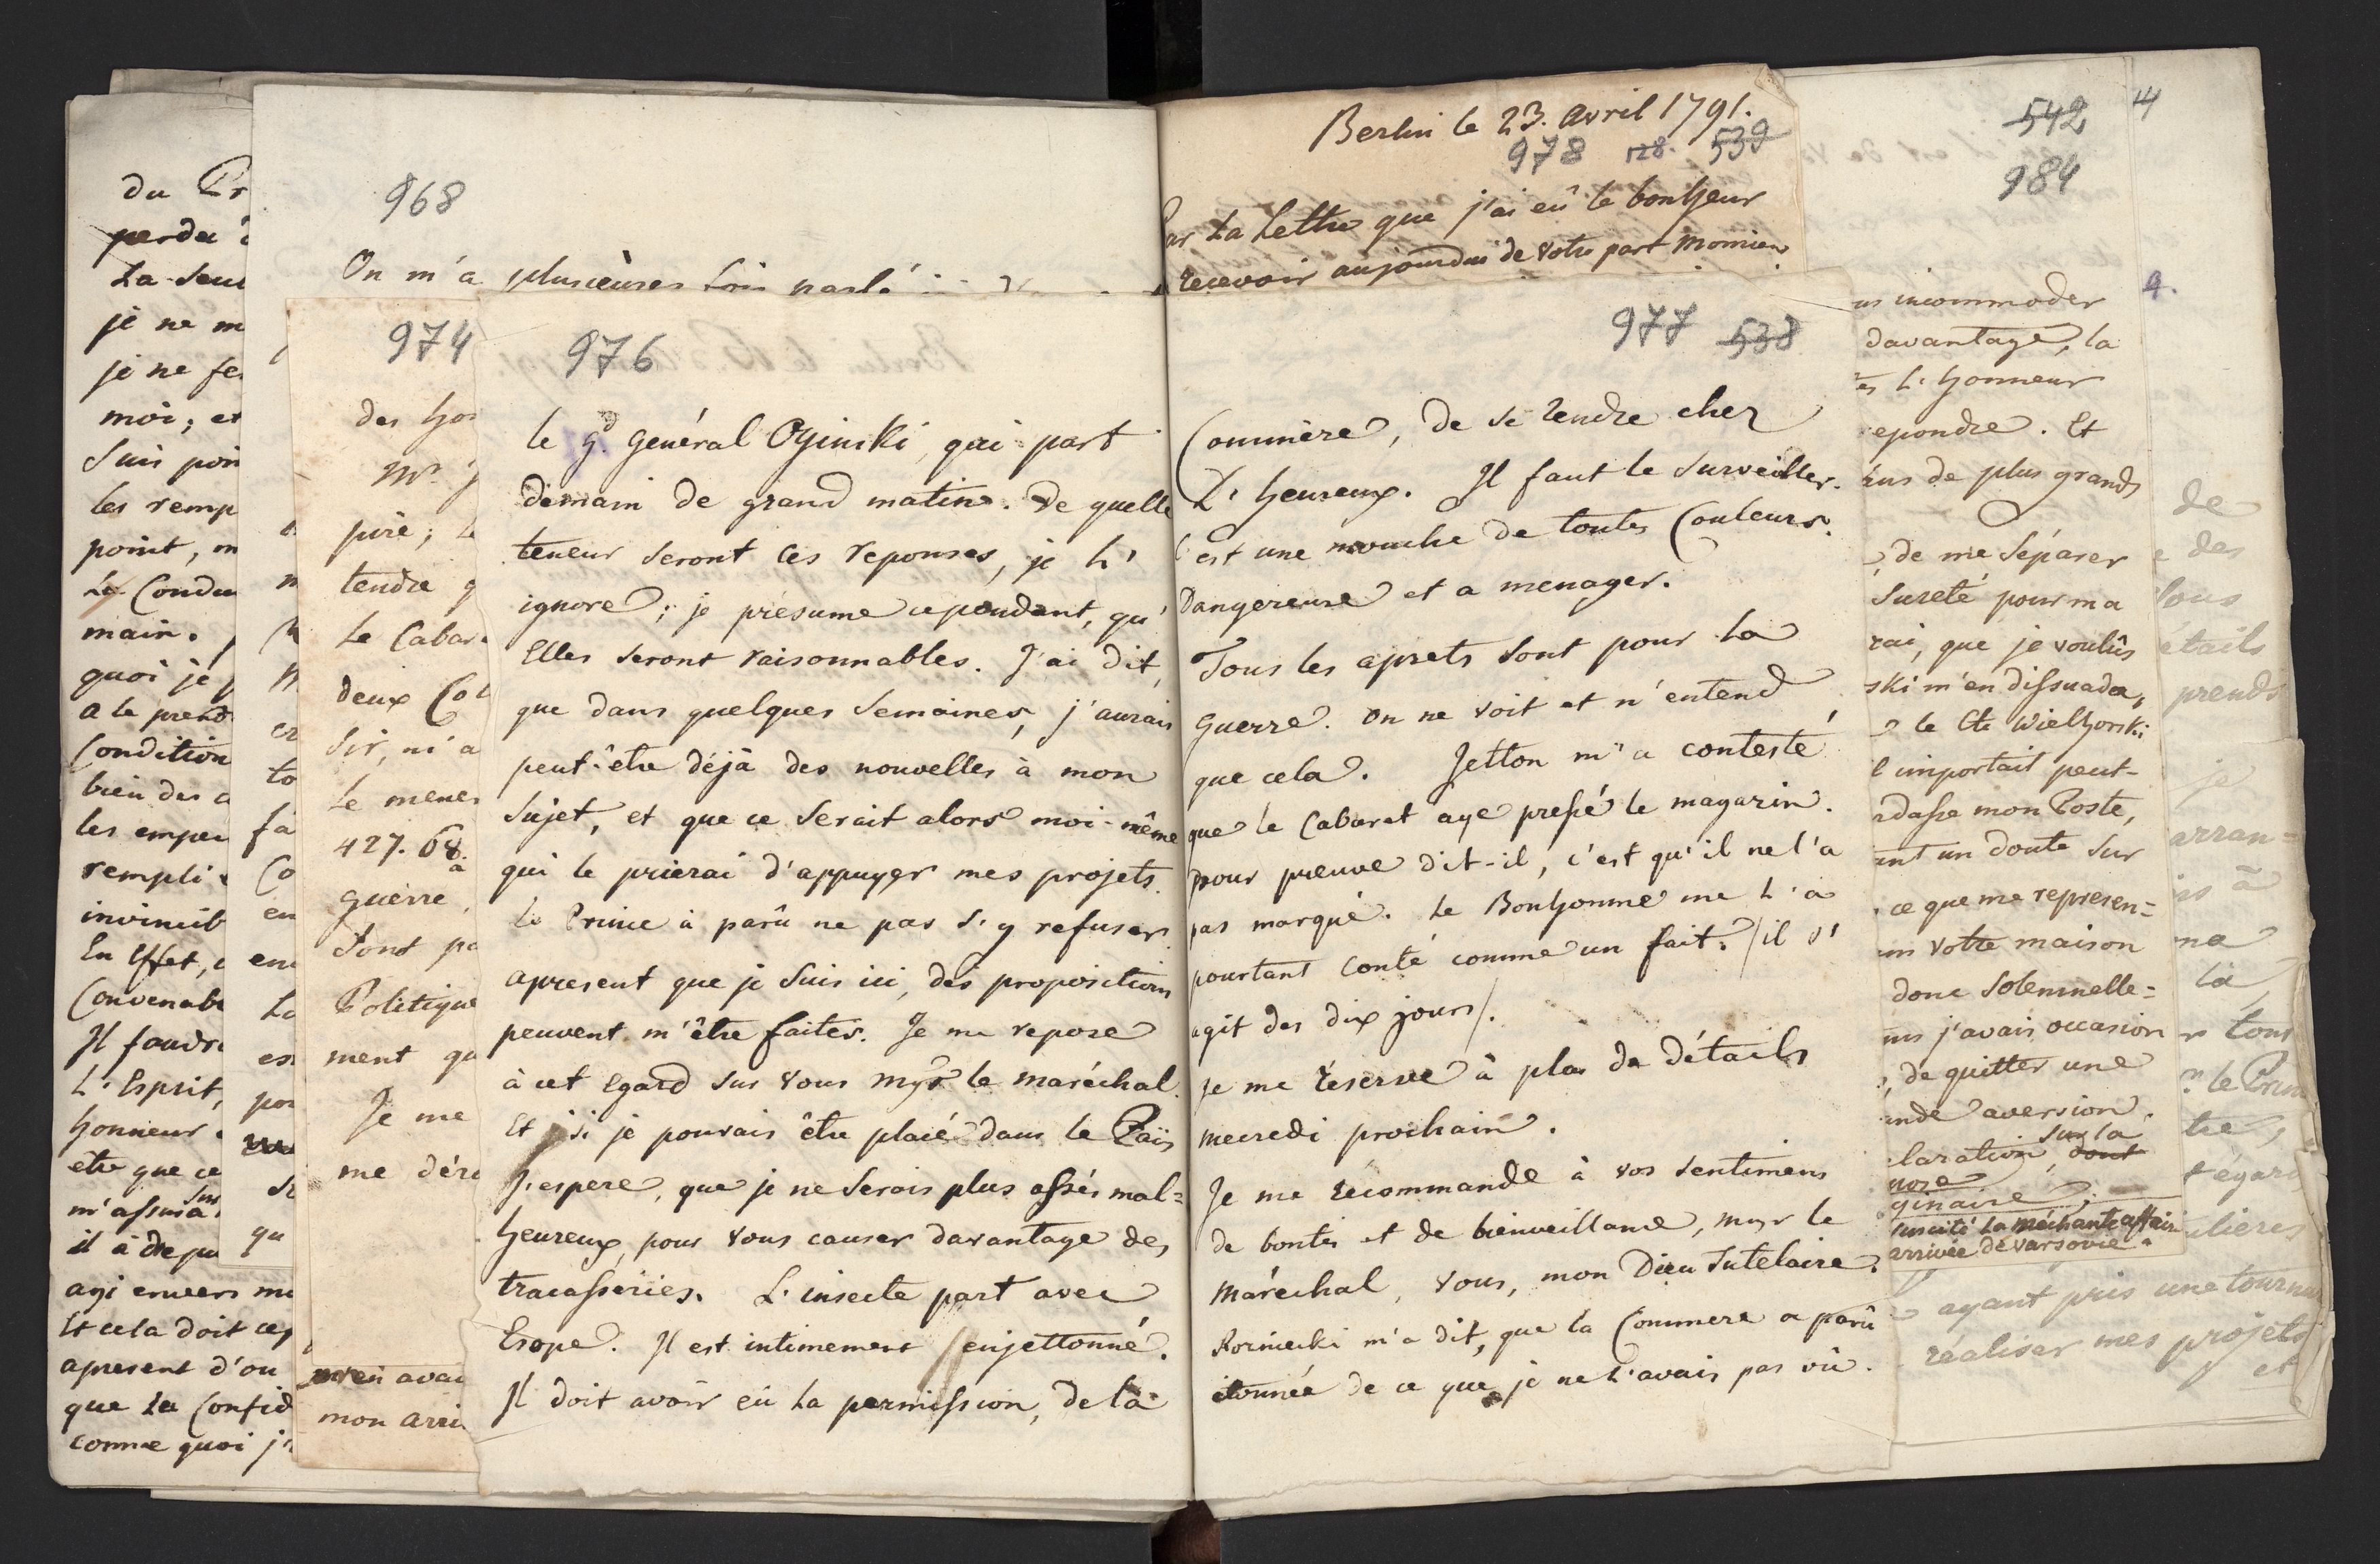 du Pr
perdu
La seu
je ne m
je ne fe
moi; et
Suis poin
les remp
point, m
La Condu
main.
quoi je
a la prend
Condition
bien des
les empe
rempli
invincib
En Effet,
Convenab
Il faudr
L'Esprit,
honneur
etre que ce
sur
m'assura
il a depu
agi envers m
Et cela doit cep
apresent d'ou
que la Confid
comme quoi j'
968
On m'a plusieures fois parlé
to
fa
Co
en
La
es
qu
974
des ho
Mr.
pire; L
tendre q
Le Cabar
deux Co
Sir, m'a
Le mener
427. 68.
à
guerre,
Sont pa
Politique
ment qu
Je me
me dére
avai
mon arri
976
le gd. Général Oginski, qui part
demain de grand matin. De quelle
teneur seront les reponses, je L'
ignore; je présume cependant, qu'
Elles seront raisonnables. J'ai dit,
que dans quelques Semaines, j'aurais
peut-être déjà des nouvelles à mon
Sujet, et que ce Serait alors moi-même
qui le prierai d'appuyer mes projets.
Le Prince à parû ne pas s'y refuser.
apresent que je suis ici, des propositions
peuvent m'être faites. Je me repose
à cet Egard sur Vous Mgr le Maréchal.
Et si je pouvais être placé dans le Païs
J'espere, que je ne Serois plus assés mal=
heureux, pour Vous causer davantage des
tracasseries. L'insecte part avec
Esope. Il est intimement enjettonné.
Il doit avoir eû la permission, de la
Berlin le 23. Avril 1791.
978 128. 539
Par La Lettre que j'ai eû le bonheur
recevoir aujourdui de Votre part Monsieur
977 538
Commère, de se rendre chez
L'heureux. Il faut le Surveiller.
C'est une mouche de toutes Couleurs.
Dangereuse et a menager.
Tous les aprets sont pour La
guerre. On ne voit et n'entend
que cela. Jetton m'a contesté
que le Cabaret aye pressé le magazin.
pour preuve dit-il, c'est qu'il ne l'a
pas marqué. Le Bonhomme me L'a
pourtant conté comme un fait. /il s'
agit des dix jours/.
Je me réserve à plus de détails
mecredi prochain.
Je me recommande à vos sentimens
de bontés et de bienveillance, Mgr le
Maréchal, Vous, mon Dieu Tutelaire.
Rozniecki m'a dit, que la Commere a parû
étonnée de ce que je ne L'avais pas vû.
542
984
us incommoder
davantage, la
L'honneur
epondre. Et
lus de plus grands
de me séparer
Sureté pour ma
rai, que je voulûs
ski m'en dissuada,
le Cte Wielhorski
l importait peut-
rdasse mon Poste,
ant un doute sur
ce que me represen=
Votre maison
donc Solemnelle=
ns j'avais occasion
, de quitter une
nde aversion.
sur la
laration, dont
ginaire
suscité la méchante affair
arrivée de Varsovie.
4
4.
de
e des
Vous
étails
prends
je
arran=
à
na
là,
r tous
le Prin
tre,
égard
lières
ayant pris une tourn
réaliser mes projets
et